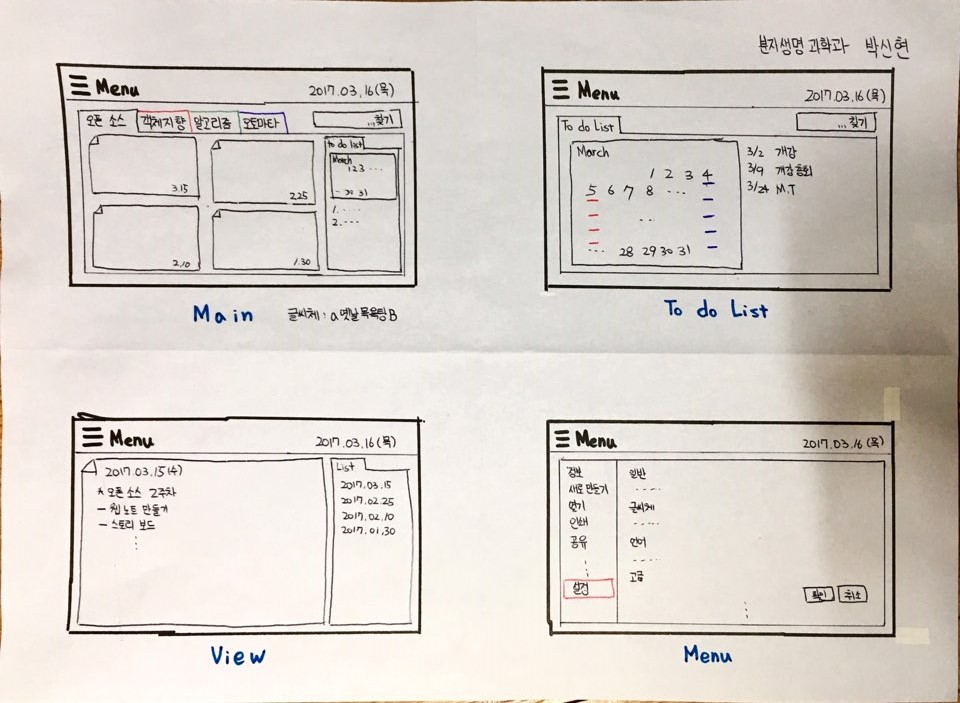 분자생명과학과 박신현
Menu
2017.03.16(목)
오픈 소스 객체지향 알고리즘 오토마타
...찾기
3.15
2.25
2.10
1.30
to do list
March
1 2 3 ...
... 30 31
1. ....
2. ...
Main
글씨체 : a옛날목욕탕B
Menu
2017.03.16(목)
To do List
...찾기
March
1 2 3 4
5 6 7 8 ...
...
... 28 29 30 31
3/2 개강
3/9 개강총회
3/24 M.T
To do List
Menu
2017.03.16(목)
2017.03.15(수)
* 오픈 소스 2주차
- 웹 노트 만들기
- 스토리 보드
List
2017.03.15
2017.02.25
2017.02.10
2017.01.30
View
Menu
2017.03.16(목)
정보
새로 만들기
열기
인쇄
공유
설정
일반
.....
글씨체
.....
언어
.....
고급
확인
취소
Menu